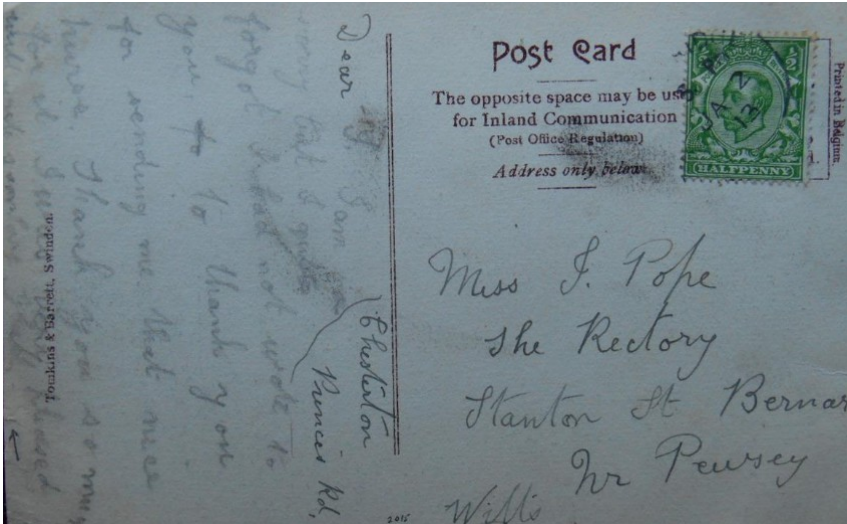 Post Card
The opposite space may be use
for Inland Communication
(Post Office Regulation)
Address only below
HALFPENNY
½
JA 2
13
Printed in Belgium.
Miss I. Pope
The Rectory
Stanton St Bernar
Nr Pewsey
Wilts
Chesterton
Princes Rd,
Dear I. I am
sorry but I quite
forgot I had not wrote to
you to to thank you
for sending me that nice
purse. Thank you so mu
for it I was very pleased
Tomkins & Barrett, Swindon.
2015